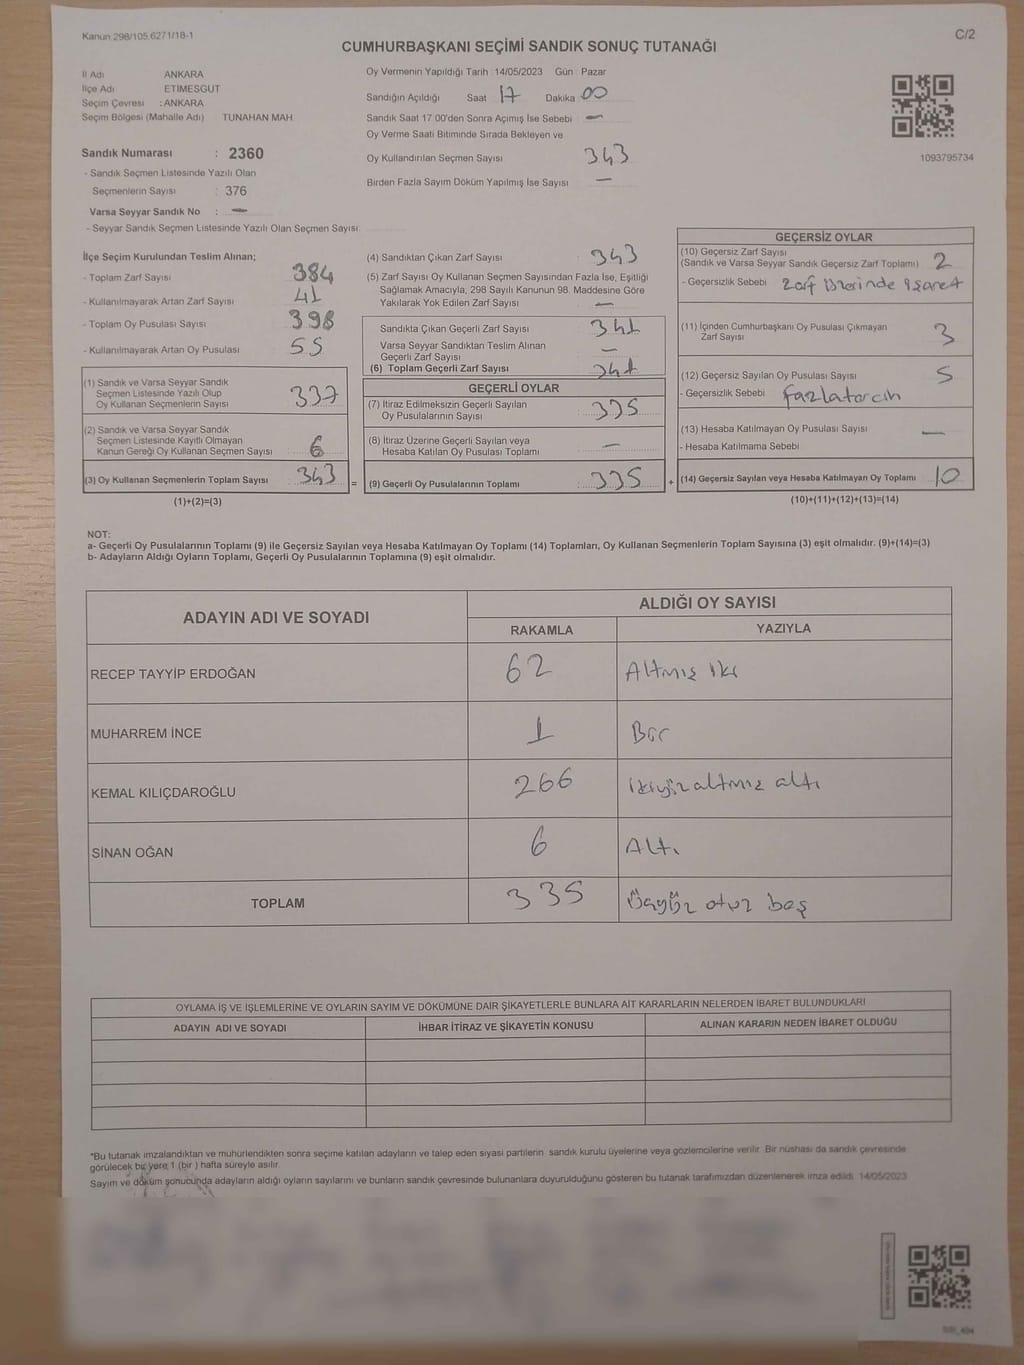 Kanun 298/105,6271/18-1
C/2
CUMHURBAŞKANI SEÇİMİ SANDIK SONUÇ TUTANAĞI
İl Adı ANKARA
İlçe Adı ETİMESGUT
Seçim Çevresi : ANKARA
Seçim Bölgesi (Mahalle Adı) TUNAHAN MAH.
Sandık Numarası : 2360
- Sandık Seçmen Listesinde Yazılı Olan
Seçmenlerin Sayısı : 376
Varsa Seyyar Sandık No : —
- Seyyar Sandık Seçmen Listesinde Yazılı Olan Seçmen Sayısı:
Oy Vermenin Yapıldığı Tarih : 14/05/2023 Gün : Pazar
Sandığın Açıldığı Saat 17 Dakika 00
Sandık Saat 17 00'den Sonra Açımış İse Sebebi —
Oy Verme Saati Bitiminde Sırada Bekleyen ve
Oy Kullandırılan Seçmen Sayısı 343
Birden Fazla Sayım Döküm Yapılmış İse Sayısı —
1093795734
İlçe Seçim Kurulundan Teslim Alınan;
- Toplam Zarf Sayısı 384
- Kullanılmayarak Artan Zarf Sayısı 41
- Toplam Oy Pusulası Sayısı 398
- Kullanılmayarak Artan Oy Pusulası 55
(1) Sandık ve Varsa Seyyar Sandık
Seçmen Listesinde Yazılı Olup
Oy Kullanan Seçmenlerin Sayısı 337
(2) Sandık ve Varsa Seyyar Sandık
Seçmen Listesinde Kayıtlı Olmayan
Kanun Gereği Oy Kullanan Seçmen Sayısı 6
(3) Oy Kullanan Seçmenlerin Toplam Sayısı 343 =
(1)+(2)=(3)
(4) Sandıktan Çıkan Zarf Sayısı : 343
(5) Zarf Sayısı Oy Kullanan Seçmen Sayısından Fazla İse, Eşitliği
Sağlamak Amacıyla, 298 Sayılı Kanunun 98. Maddesine Göre
Yakılarak Yok Edilen Zarf Sayısı : —
Sandıkta Çıkan Geçerli Zarf Sayısı : 341
Varsa Seyyar Sandıktan Teslim Alınan
Geçerli Zarf Sayısı : —
(6) Toplam Geçerli Zarf Sayısı 341
GEÇERLİ OYLAR
(7) İtiraz Edilmeksizin Geçerli Sayılan
Oy Pusulalarının Sayısı : 335
(8) İtiraz Üzerine Geçerli Sayılan veya
Hesaba Katılan Oy Pusulası Toplamı : —
(9) Geçerli Oy Pusulalarının Toplamı : 335 +
GEÇERSİZ OYLAR
(10) Geçersiz Zarf Sayısı
(Sandık ve Varsa Seyyar Sandık Geçersiz Zarf Toplamı) 2
- Geçersizlik Sebebi : Zarf üzerinde işaret
(11) İçinden Cumhurbaşkanı Oy Pusulası Çıkmayan
Zarf Sayısı 3
(12) Geçersiz Sayılan Oy Pusulası Sayısı 5
- Geçersizlik Sebebi : fazlatercih
(13) Hesaba Katılmayan Oy Pusulası Sayısı —
- Hesaba Katılmama Sebebi
(14) Geçersiz Sayılan veya Hesaba Katılmayan Oy Toplamı 10
(10)+(11)+(12)+(13)=(14)
NOT:
a- Geçerli Oy Pusulalarının Toplamı (9) ile Geçersiz Sayılan veya Hesaba Katılmayan Oy Toplamı (14) Toplamları, Oy Kullanan Seçmenlerin Toplam Sayısına (3) eşit olmalıdır. (9)+(14)=(3)
b- Adayların Aldığı Oyların Toplamı, Geçerli Oy Pusulalarının Toplamına (9) eşit olmalıdır.
ADAYIN ADI VE SOYADI ALDIĞI OY SAYISI
RAKAMLA YAZIYLA
RECEP TAYYİP ERDOĞAN 62 Altmış iki
MUHARREM İNCE 1 Bir
KEMAL KILIÇDAROĞLU 266 ikiyüzaltmız altı
SİNAN OĞAN 6 Altı
TOPLAM 335 Üçyüz otuz beş
OYLAMA İŞ VE İŞLEMLERİNE VE OYLARIN SAYIM VE DÖKÜMÜNE DAİR ŞİKAYETLERLE BUNLARA AİT KARARLARIN NELERDEN İBARET BULUNDUKLARI
ADAYIN ADI VE SOYADI İHBAR İTİRAZ VE ŞİKAYETİN KONUSU ALINAN KARARIN NEDEN İBARET OLDUĞU
*Bu tutanak imzalandıktan ve mühürlendikten sonra seçime katılan adayların ve talep eden siyasi partilerin sandık kurulu üyelerine veya gözlemcilerine verilir. Bir nüshası da sandık çevresinde
görülecek bir yere 1 (bir) hafta süreyle asılır.
Sayım ve döküm sonucunda adayların aldığı oyların sayılarını ve bunların sandık çevresinde bulunanlara duyurulduğunu gösteren bu tutanak tarafımızdan düzenlenerek imza edildi. 14/05/2023